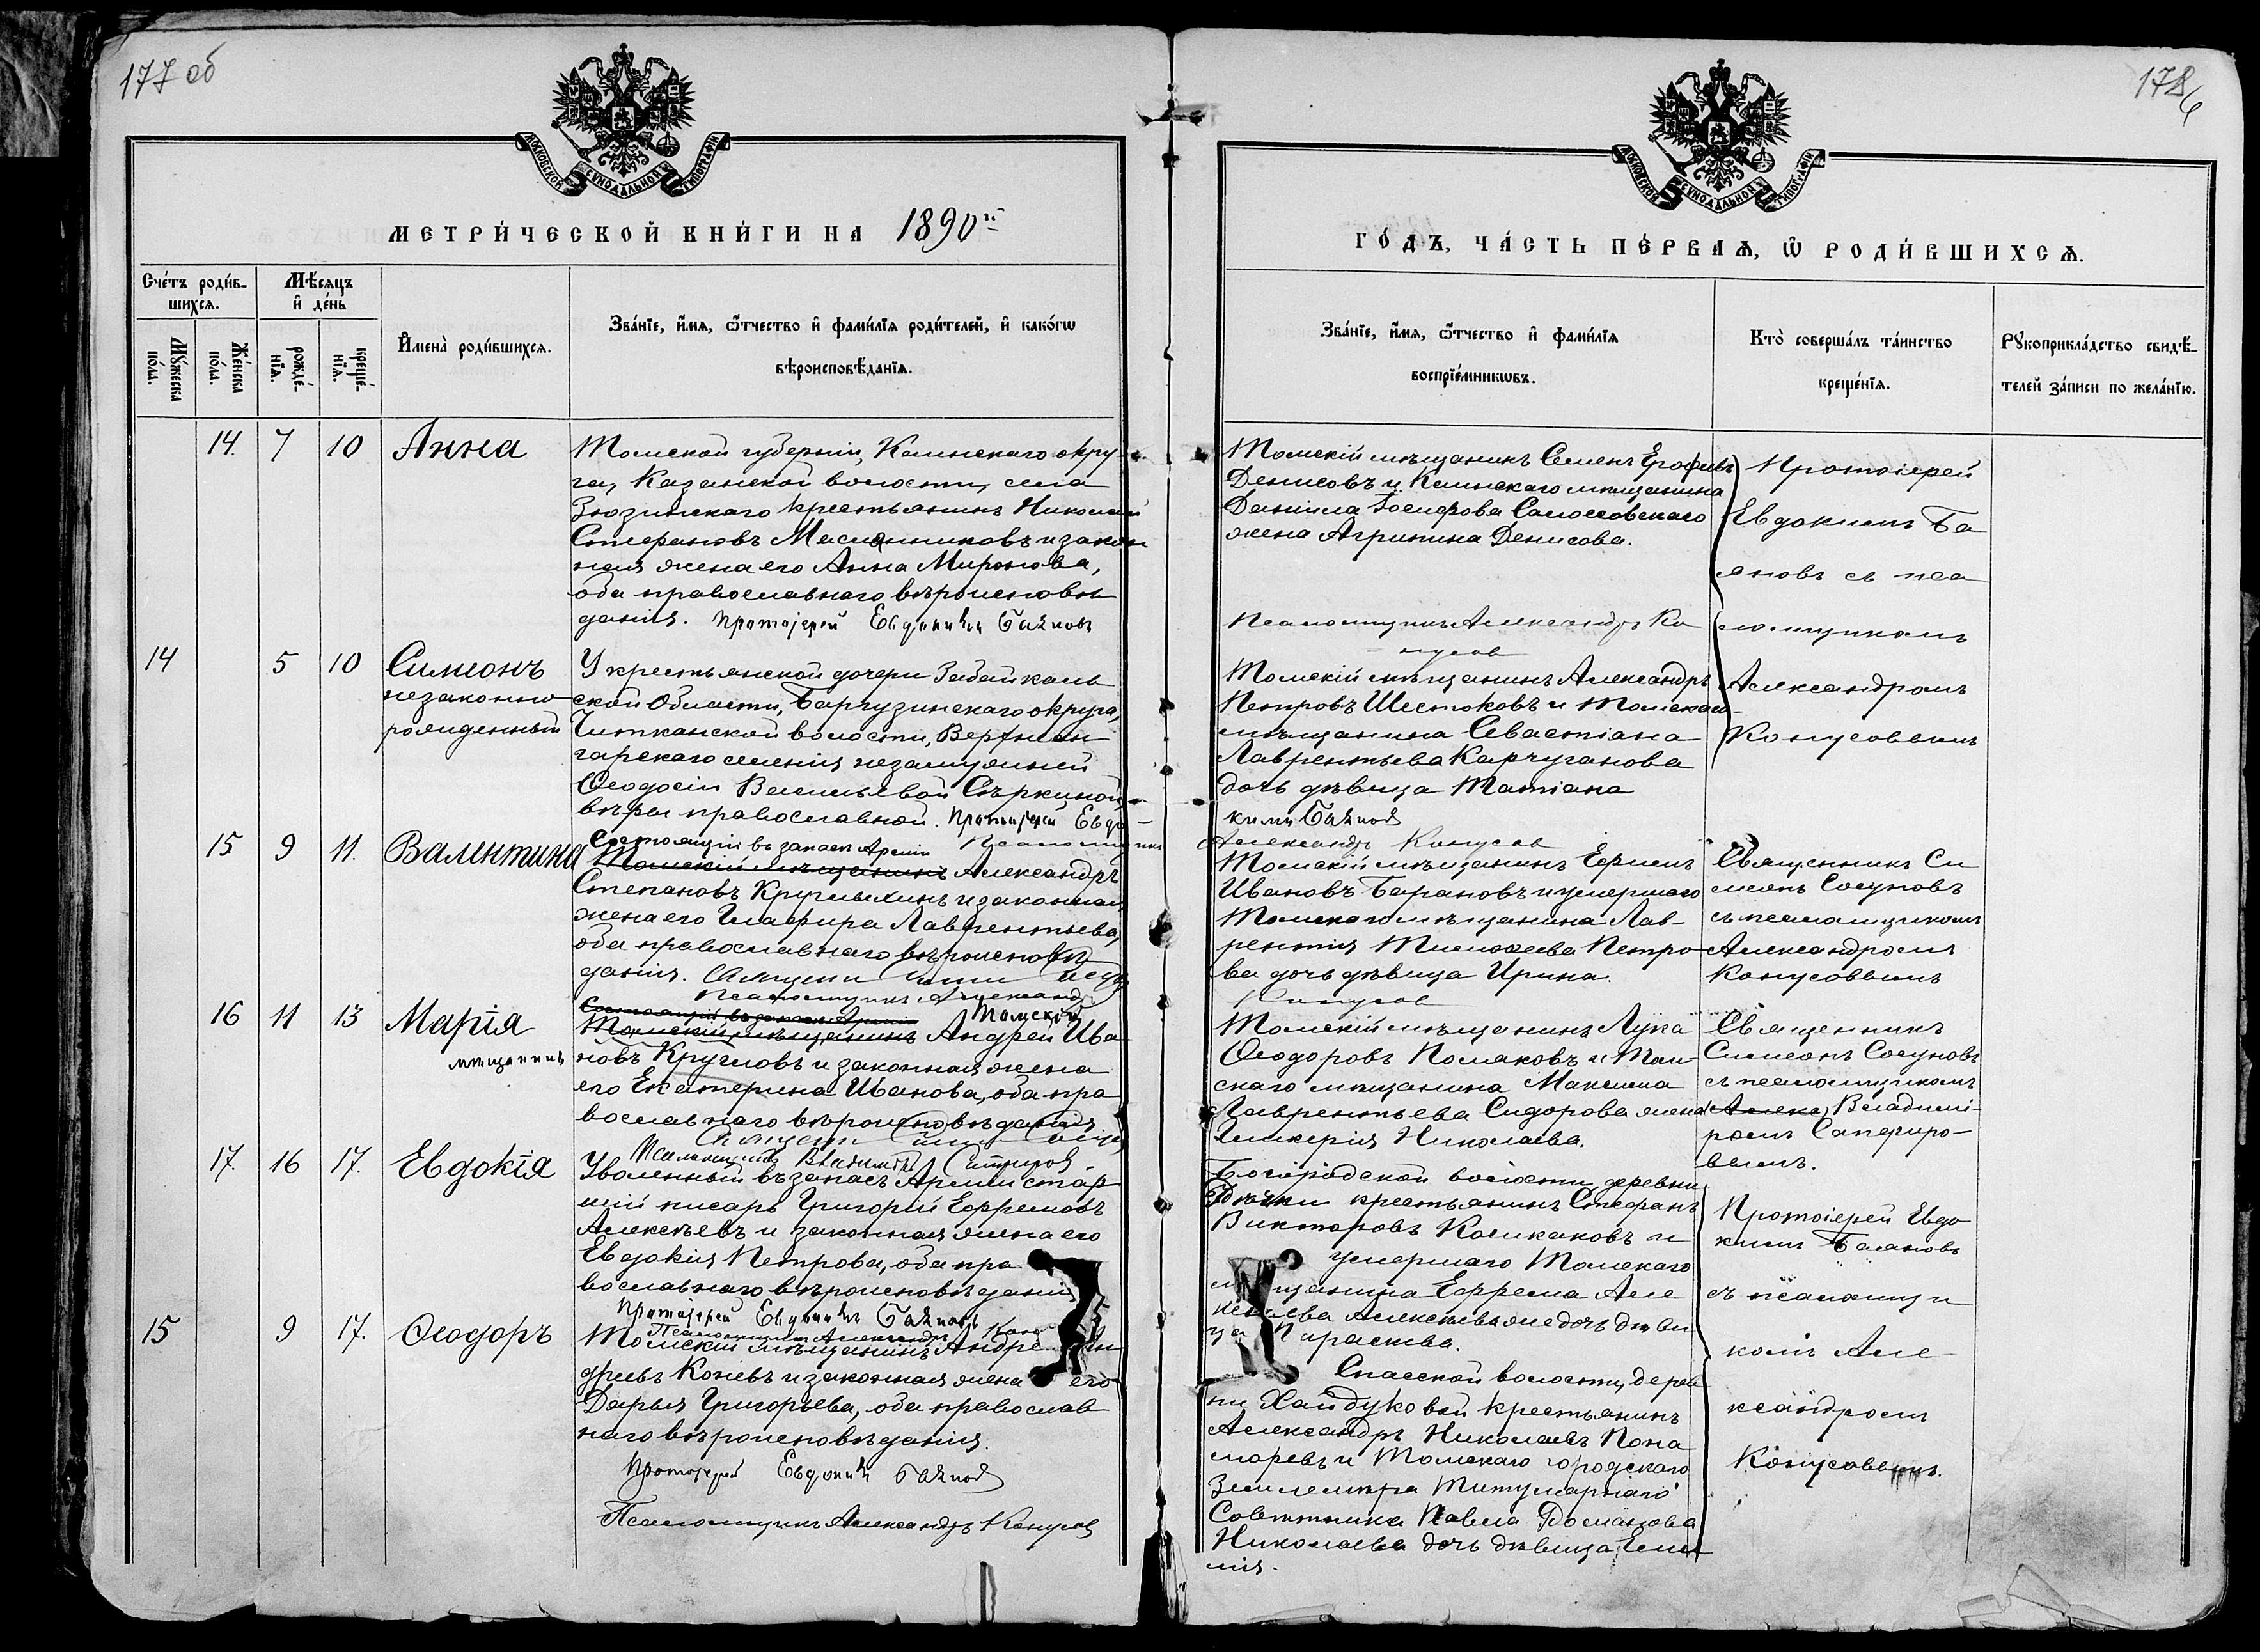 177 об
МОСКОВСКОЙ СѴНОДАЛЬНОЙ ТИПОГРАФІИ
МЕТРИ́ЧЕСКОЙ КНИ́ГИ НА 1890 й
Сче́тъ роди́в-
шихсѧ.
Мꙋ́жеска
по́ла.
Же́нска
по́ла.
Мѣ́сѧцъ
и҆ де́нь
рожде́-
нїѧ.
креще́-
нїѧ.
И҆мена̀ роди́вшихсѧ.
Зва́нїе, и҆́мѧ, ѻ҆́тчество и҆ фами́лїѧ роди́телей, и҆ како́гѡ
вѣроисповѣ́данїѧ.
14. 7 10 Анна
Томской губерніи, Каинскаго окру
га, Казанской волости, села
Зюзинскаго крестьянинъ Николай
Стефановъ Масленниковъ и закон
ная жена его Анна Миронова,
оба православнаго вѣроисповѣ
данія. Протоіерей Евдокимъ Баяновъ
14 5 10 Симеонъ
незаконно
рожденный
У крестьянской дочери Забайкаль
ской Области, Баргузинскаго округа,
Читканской волости,
гарскаго селенія незамужней
Ѳеодосіи Васильевой Сѣркиной,
вѣры православной. Протоіерей Евдо-
15 9 11. Валентина
Состоящій въ запасѣ Арміи Псаломщикъ
Томскій мѣщанинъ Александръ
Степановъ и законная
жена его Глафира Лаврентьева,
оба православнаго вѣроисповѣ
данія.
Псаломщикъ Александ
16 11 13 Марія
мѣщанинъ
Состоящій въ запасѣ Арміи Томскій
Томскій мѣщанинъ Андрей Ива
новъ Кругловъ и законная жена
его Екатерина Иванова, оба пра
вославнаго вѣроисповѣданія
Псаломщикъ Владимиръ
17. 16 17. Евдокія
Уволенный въ запасъ Арміи стар
шій писарь Григорій Ефремовъ
Алексѣевъ и законная жена его
Евдокія Петрова, оба пра
вославнаго вѣроисповѣдані
Протоіерей Евдокимъ Баяновъ
Псаломщикъ Александръ
15 9 17. Ѳеодоръ
Томскій мѣщанинъ Андре Ан
дреевъ Коневъ и законная жена его
Дарья Григорьева, оба православ
наго вѣроисповѣданія.
Протоіерей Евдокимъ Баяновъ
Псаломщикъ Александръ Конусов
178
6
МОСКОВСКОЙ СѴНОДАЛЬНОЙ ТИПОГРАФІИ
ГО́ДЪ, ЧА́СТЬ ПЕ́РВАѦ, Ѡ҆ РОДИ́ВШИХСѦ.
Зва́нїе, и҆́мѧ, ѻ҆́тчество и҆ фами́лїѧ
воспрїе́мникѡвъ.
Кто̀ соверша́лъ та́инство
креще́нїѧ.
Рꙋкоприкла́дство свидѣ́-
телей за́писи по жела́нїю.
Томскій мѣщанинъ Семенъ Ерофѣевъ
Денисовъ и Каинскаго мѣщанина
Даніила
жена Агрипина Денисова.
Протоіерей
Евдокимъ Ба
яновъ съ пса
ломщикомъ
Александромъ
Конусовымъ
Псаломщикъ Александръ Ко
нусов
Томскій мѣщанинъ Александръ
Петровъ Шестаковъ и Томскаго
мѣщанина Севастіана
Лаврентьева Карчуганова
дочь дѣвица Татіана
кимъ Баянов
Александръ Конусов
Томскій мѣщанинъ Ефимъ
Ивановъ Барановъ и умершаго
Томскаго мѣщанина Лав-
рентія Тимоѳеева Петро
ва дочь дѣвица Ирина.
Конусов
Священникъ Си
меонъ Сосуновъ
съ псаломщикомъ
Александромъ
Конусовымъ
Томскій мѣщанинъ Лука
Ѳеодоровъ Полаковъ и Том-
скаго мѣщанина Максима
Лаврентьева Сидорова жена
Гликерія Николаева.
Священникъ
Симеонъ Сосуновъ
съ псаломщикомъ
Алекс Владимі-
ромъ Сапфиро-
вымъ.
Богородской волости, деревни
крестьянинъ Стефанъ
Викторовъ и
умершаго Томскаго
щанина Ефрема Але
ксѣева Алексѣева же дочь дѣви
ца Параскева.
Протоіерей Евдо
кимъ Баяновъ
съ псаломщи
комъ Але
ксандромъ
Конусовымъ.
Спасской волости, дерев
ни Хайдуковой крестьянинъ
Александръ Николаевъ Пона
маревъ и Томскаго городскаго
Землемѣра Титулярнаго
Совѣтника Павла
Николаева дочь дѣвица
лія.